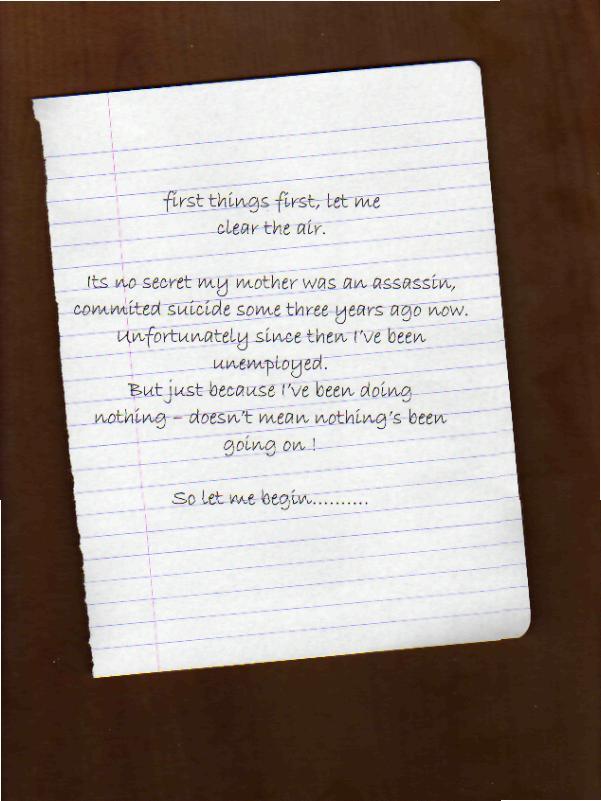 first things first, let me
clear the air.
Its no secret my mother was an assassin,
commited suicide some three years ago now.
Unfortunately since then I've been
unemployed.
But just because I've been doing
nothing – doesn't mean nothing's been
going on !
So let me begin..........